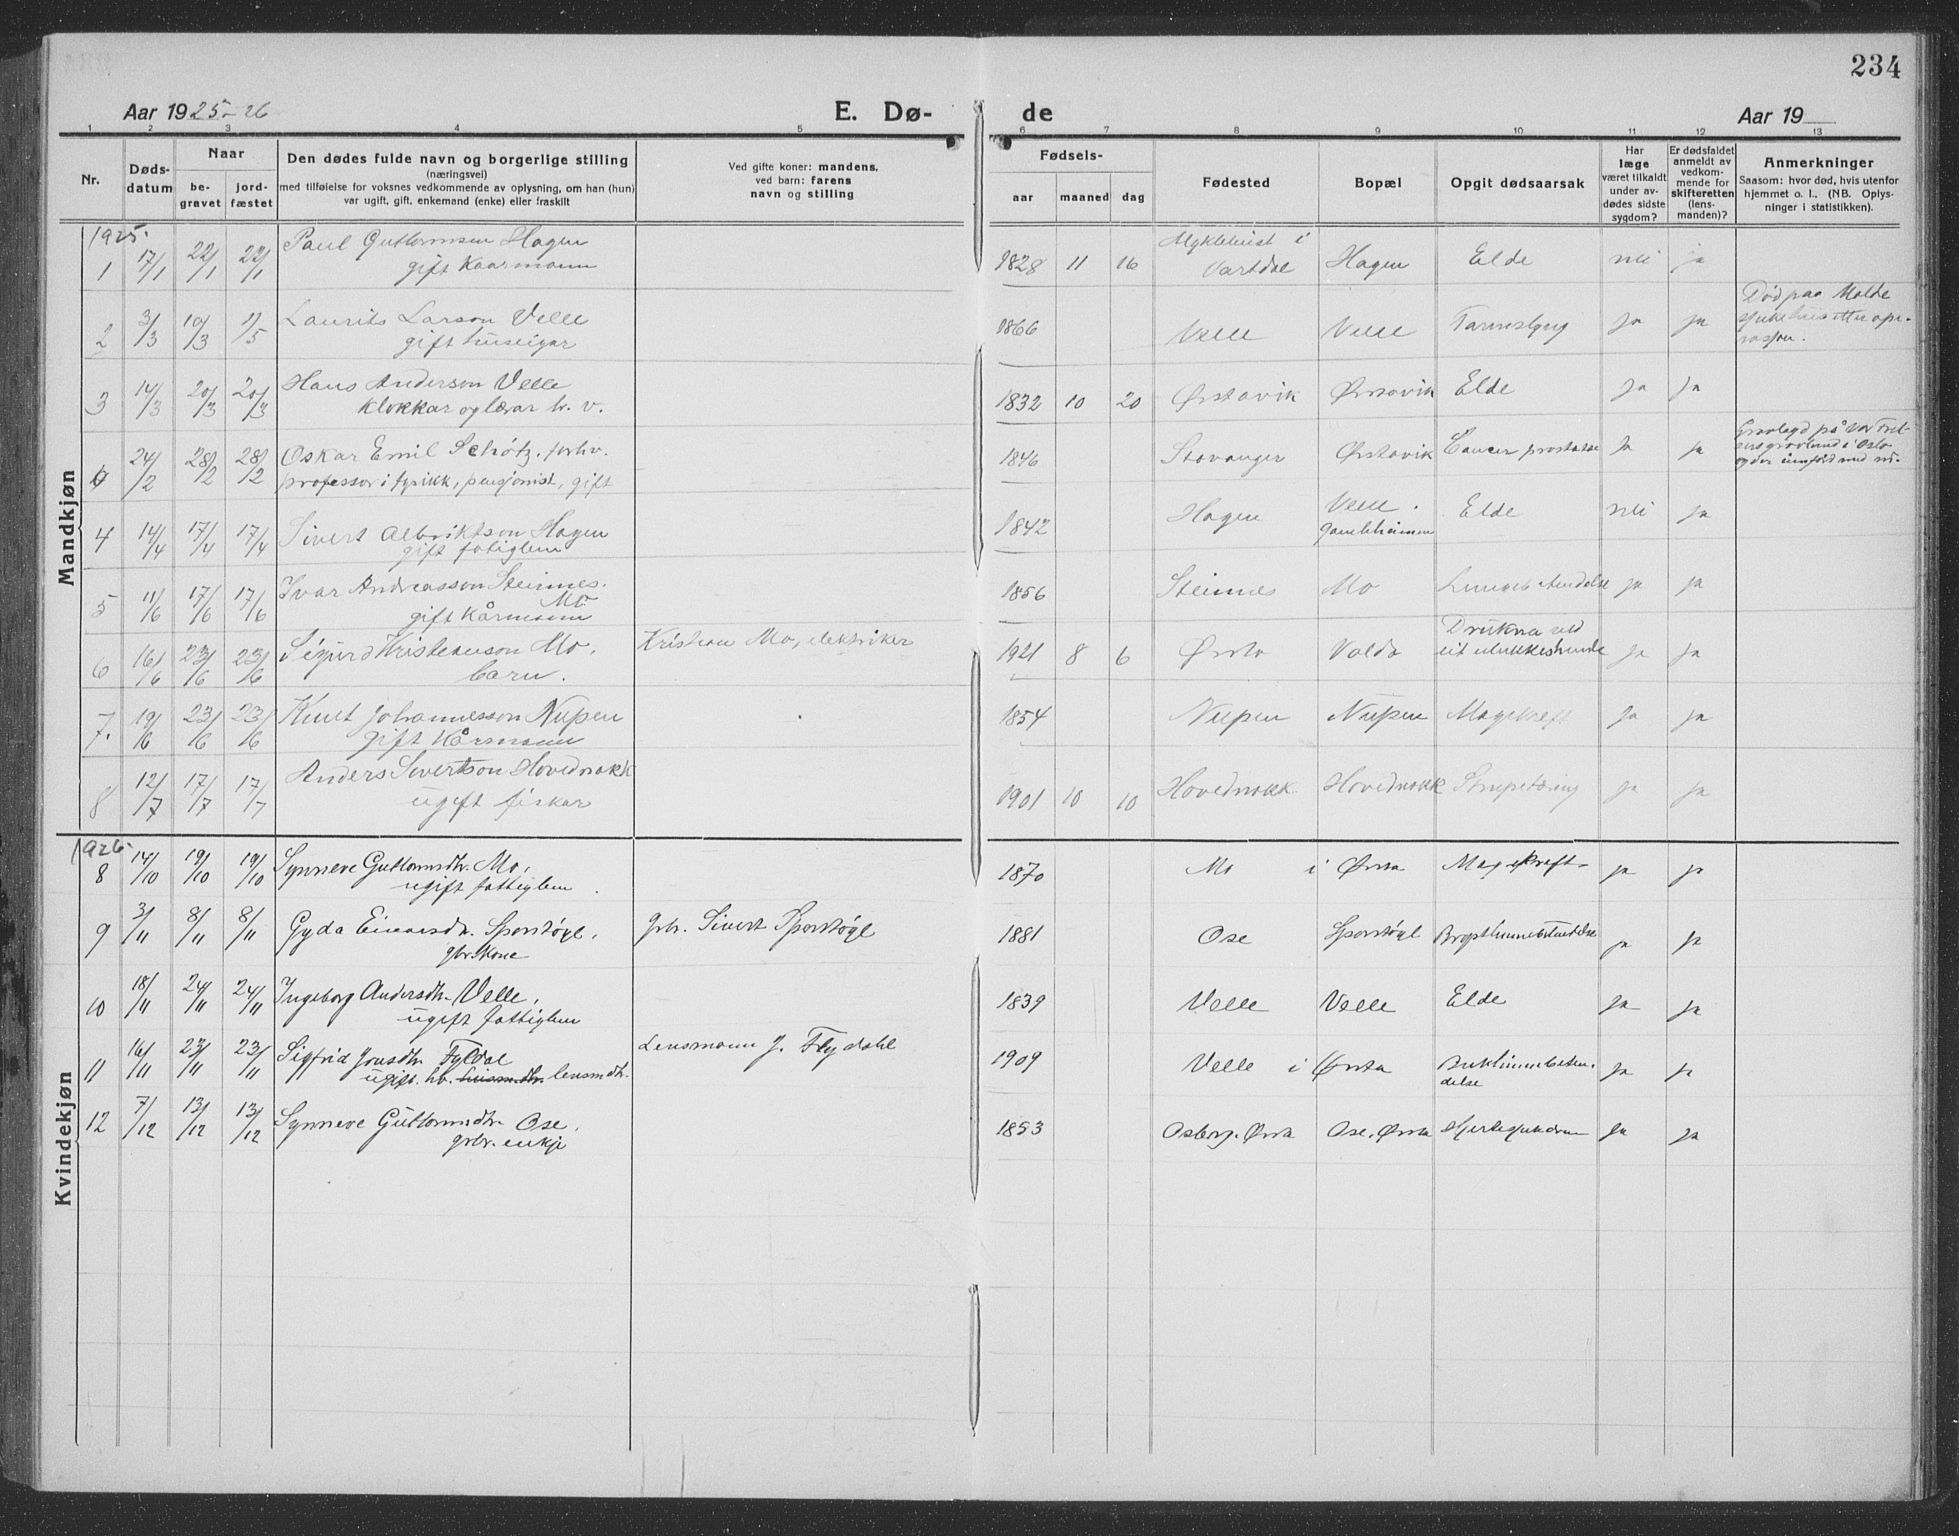 234
Aar 1925-26
E. Dø-
de
Aar 19
1 2 3 4 5 6 7 8 9 10 11 12 13
Nr.
Døds-
datum
Naar
be-
gravet
jord-
fæstet
Den dødes fulde navn og borgerlige stilling
(næringsvei)
med tilføielse for voksnes vedkommende av oplysning, om han (hun)
var ugift, gift, enkemand (enke) eller fraskilt
Ved gifte koner: mandens,
ved barn: farens
navn og stilling
Fødsels-
aar maaned dag
Fødested
Bopæl
Opgit dødsaarsak
Har
læge
været tilkaldt
under av-
dødes sidste
sygdom?
Er dødsfaldet
anmeldt av
vedkom-
mende for
skifteretten
(lens-
manden)?
Anmerkninger
Saasom: hvor død, hvis utenfor
hjemmet o. l., (NB. Oplys-
ninger i statistikken).
Mandkjøn
1925.
1 17/1 22/1 22/1 Paul Guttormsen Hagen
gift Kaarmann
1828 11 16 Myklebust i
Vartdal Hagen Elde nei ja
2 3/3 10/3 1/5 Laurits Larson Velle
gift huseigar
1866 Velle Velle Tarmslyng ja ja
Død paa Molde
sjukehus etter ope-
rasjon.
3 14/3 20/3 20/3 Hans Anderson Velle
klokkar og lærar
1832 10 20 Ørstavik Ørstavik Elde ja ja
24/2 28/2 28/2 Oskar Emil Schøtz, forhv.
professor i fysikk, pensjonist, gift
1846 Stavanger Ørstavik Cancer prostatae ja ja
Gravlagd på Vår Frel-
sers gravlund i Oslo
og der innførd med nr.
4 14/4 17/4 17/4 Sivert Albriktson Hagen
gift fatiglem
1842 Hagen Velle
Gamleheimen Elde nei ja
5 11/6 17/6 17/6 Ivar Andreasson Steinnes.
Mo
gift Kårmann
1856 Steinnes Mo Lungebetendelse ja ja
6 16/6 23/6 23/6 Sigurd Kristianson Mo,
barn.
Kristian Mo, elektriker
1921 8 6 Ørsta Volda Drukna ved
eit ulukkeshende ja ja
7. 19/6 23/6 23/6 Knut Johannesson Nupen
gift Kårsmann
1854 Nupen Nupen Magekreft ja ja
8 12/7 17/7 17/7 Anders Sivertson Hovdenakk
ugift fiskar
1901 10 10 Hovdenakk Hovdenakk Strupetæring ja ja
Kvindekjøn
1926.
8 14/10 19/10 19/10 Synneve Guttormsdtr. Mo,
ugift fattiglem
1870 Mo i Ørsta Magekreft ja ja
9 3/11 8/11 8/11 Gyda Einarsdtr. Sporstøyl,
gbr. kone
gbr. Sivert Sporstøyl
1881 Ose Sporstøyl Brysthinnebetendelse ja ja
10 18/11 24/11 24/11 Ingeborg Andersdtr. Velle,
ugift fattiglem
1839 Velle Velle Elde ja ja
11 16/11 23/11 23/11 Sigfrid Jonsdtr. Flydal
ugift. hv. lensmdtr.
Lensmann J. Flydahl
1909 Velle i Ørsta Bukhinnebeten-
delse ja ja
12 7/12 13/12 13/12 Synneve Guttormsdtr. Ose,
gbr. enkje
1853 Osborg, Ørsta Ose, Ørsta Hjertesjukdom ja ja